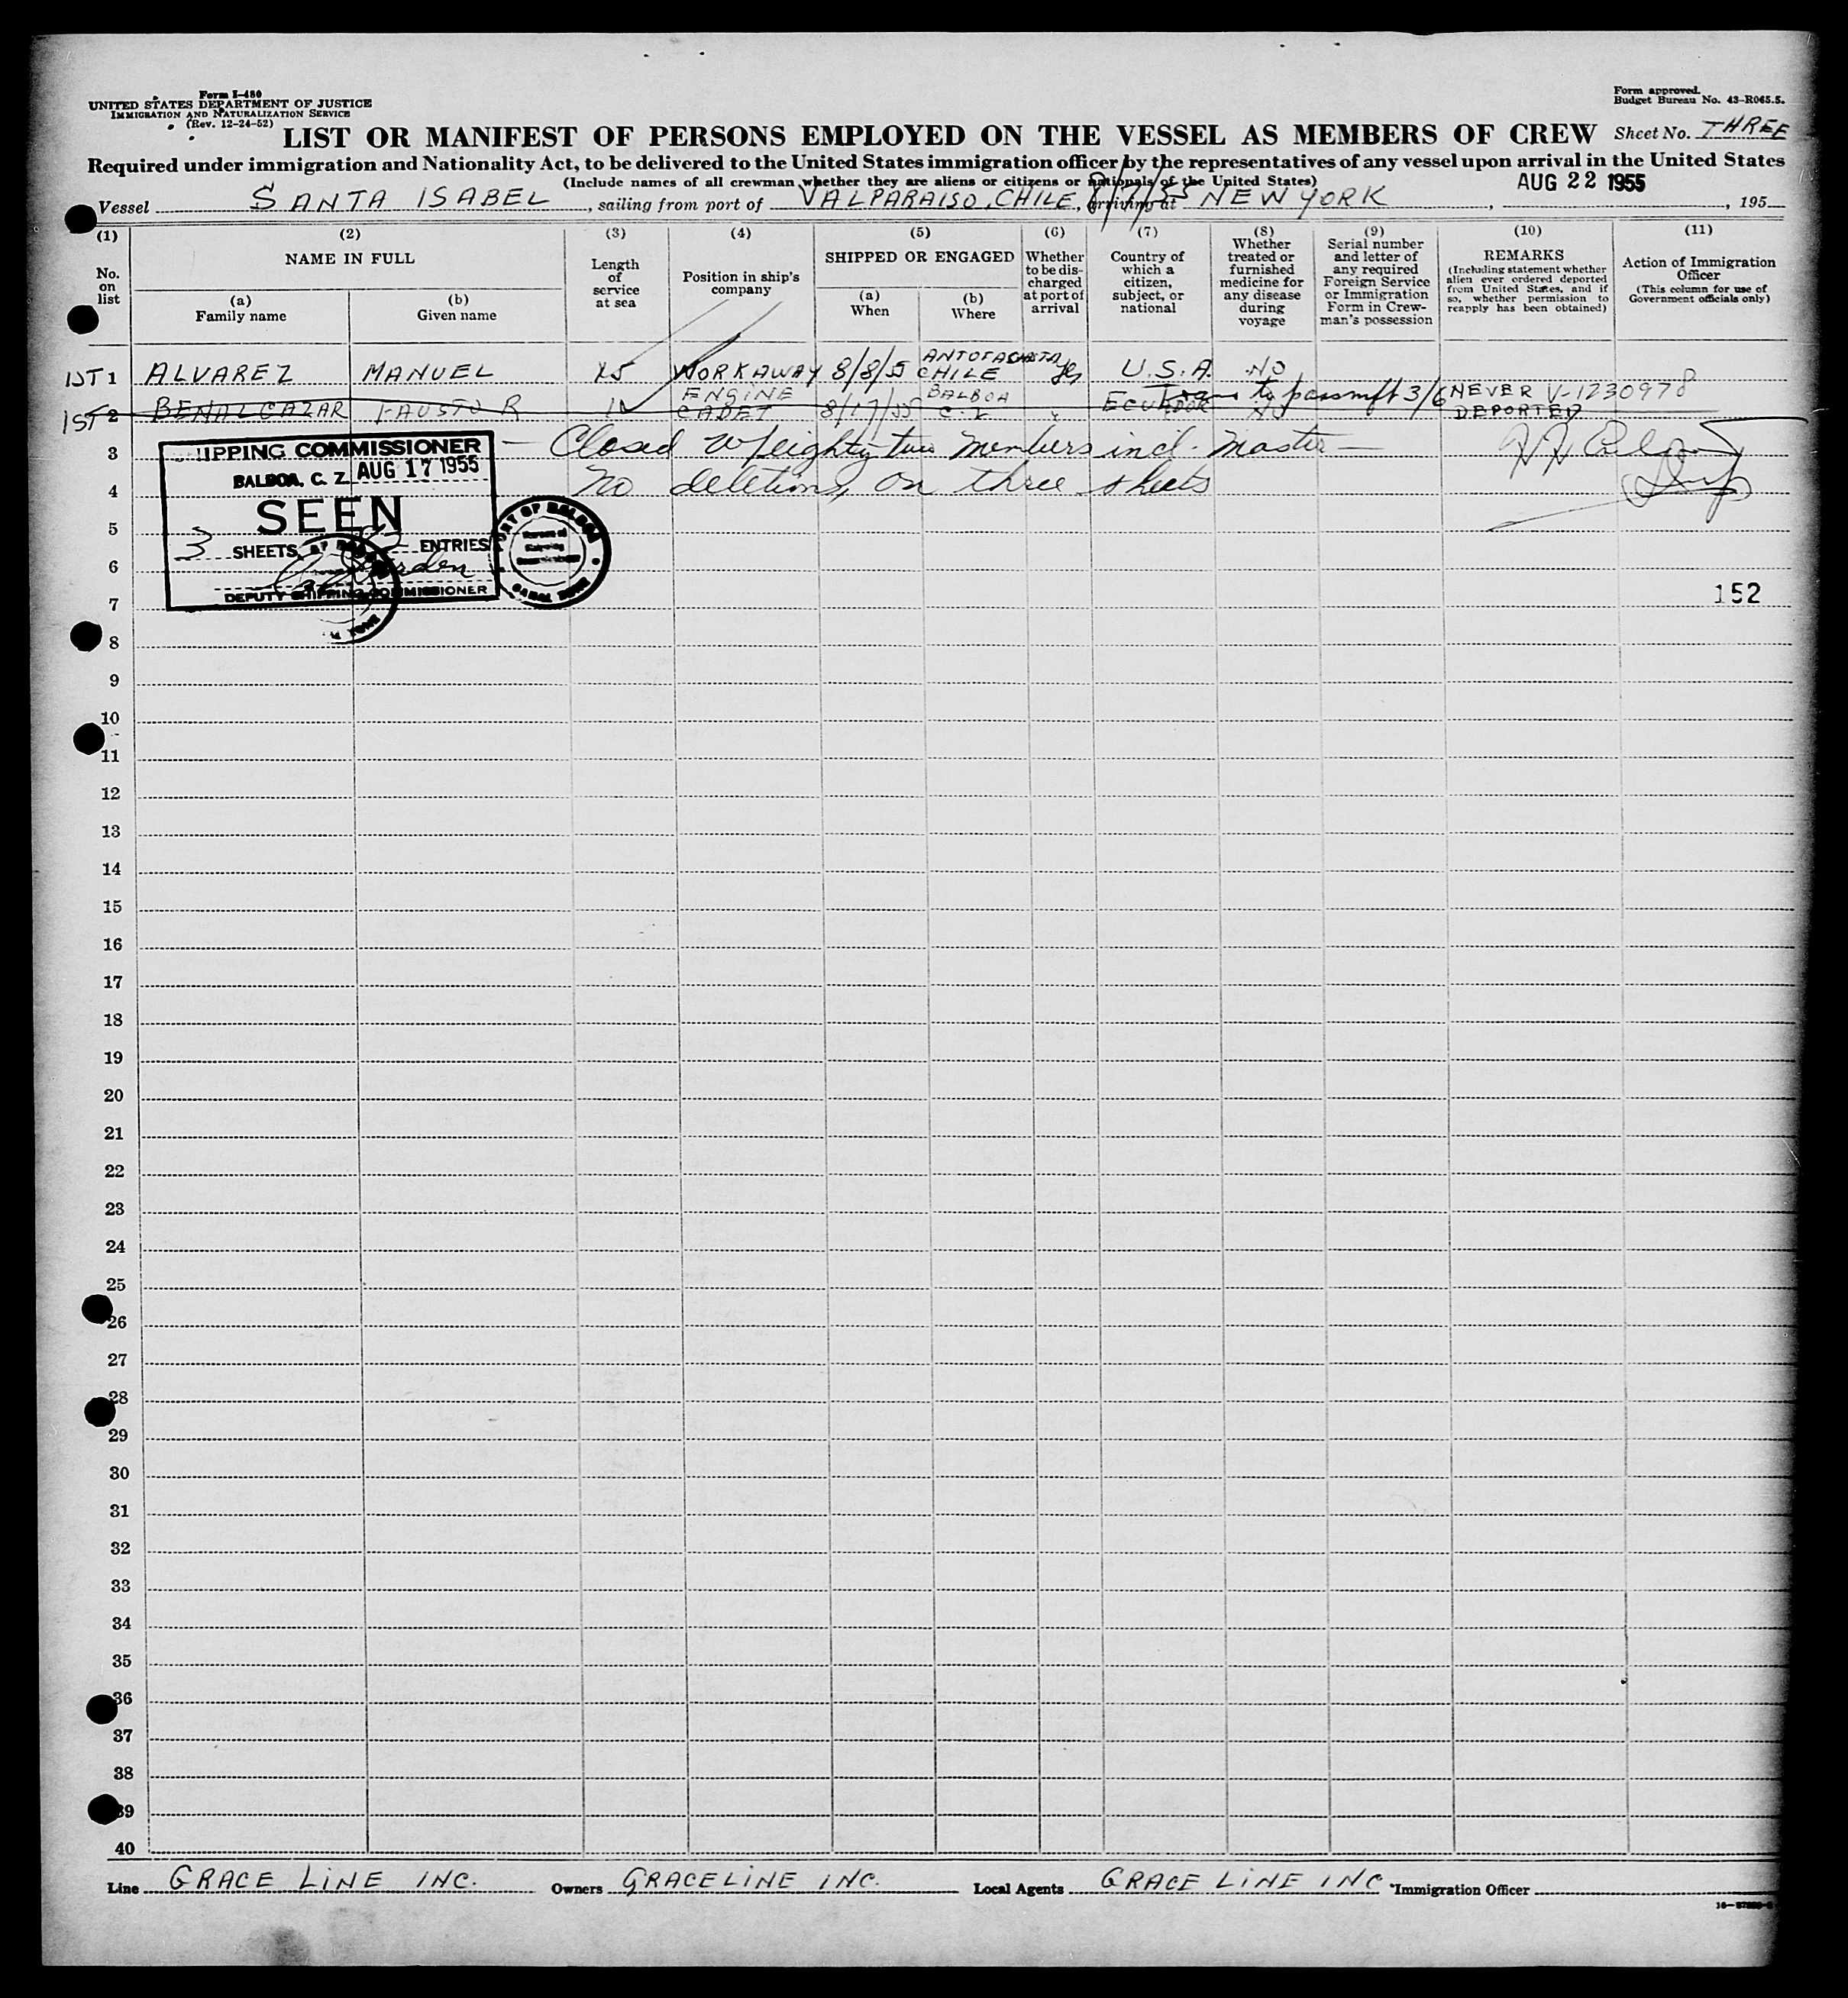 Form I-480
UNITED STATES DEPARTMENT OF JUSTICE
IMMIGRATION AND NATURALIZATION SERVICE
(Rev. 12-24-52)
Form approved.
Budget Bureau No. 43-R065.5.
LIST OR MANIFEST OF PERSONS EMPLOYED ON THE VESSEL AS MEMBERS OF CREW
Sheet No. THREE
Required under immigration and Nationality Act, to be delivered to the United States immigration officer by the representatives of any vessel upon arrival in the United States
(Include names of all crewman whether they are aliens or citizens or nationals of the United States)
AUG 22 1955
Vessel SANTA ISABEL, sailing from port of VALPARAISO, CHILE, 8/7/55 arriving at NEW YORK, , 195
(1) (2) (3) (4) (5) (6) (7) (8) (9) (10) (11)
No. on list
NAME IN FULL
(a) Family name
(b) Given name
Length of service at sea
Position in ship's company
SHIPPED OR ENGAGED
(a) When
(b) Where
Whether to be discharged at port of arrival
Country of which a citizen, subject, or national
Whether treated or furnished medicine for any disease during voyage
Serial number and letter of any required Foreign Service or Immigration Form in Crewman's possession
REMARKS
(Including statement whether alien ever ordered deported from United States, and if so, whether permission to reapply has been obtained)
Action of Immigration Officer
(This column for use of Government officials only)
1ST 1 ALVAREZ MANUEL 15 WORKAWAY 8/8/55 ANTOFAGASTA CHILE Yes U.S.A. NO
1ST 2 BENALCAZAR FAUSTO R ENGINE CADET 8/17/55 BALBOA C.Z. " ECUADOR NO NEVER DEPORTED V-1230978
to
3 Closed w/ eighty-two members incl. master
4 No deletions on three sheets
SHIPPING COMMISSIONER
BALBOA, C. Z. AUG 17 1955
SEEN
3 SHEETS 82 ENTRIES
DEPUTY SHIPPING COMMISSIONER
PORT OF BALBOA
CANAL ZONE
5
6
7
152
8
9
10
11
12
13
14
15
16
17
18
19
20
21
22
23
24
25
26
27
28
29
30
31
32
33
34
35
36
37
38
39
40
Line GRACE LINE INC. Owners GRACELINE INC. Local Agents GRACE LINE INC Immigration Officer